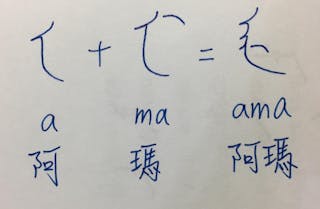 + =
a ma ama
阿 瑪 阿瑪